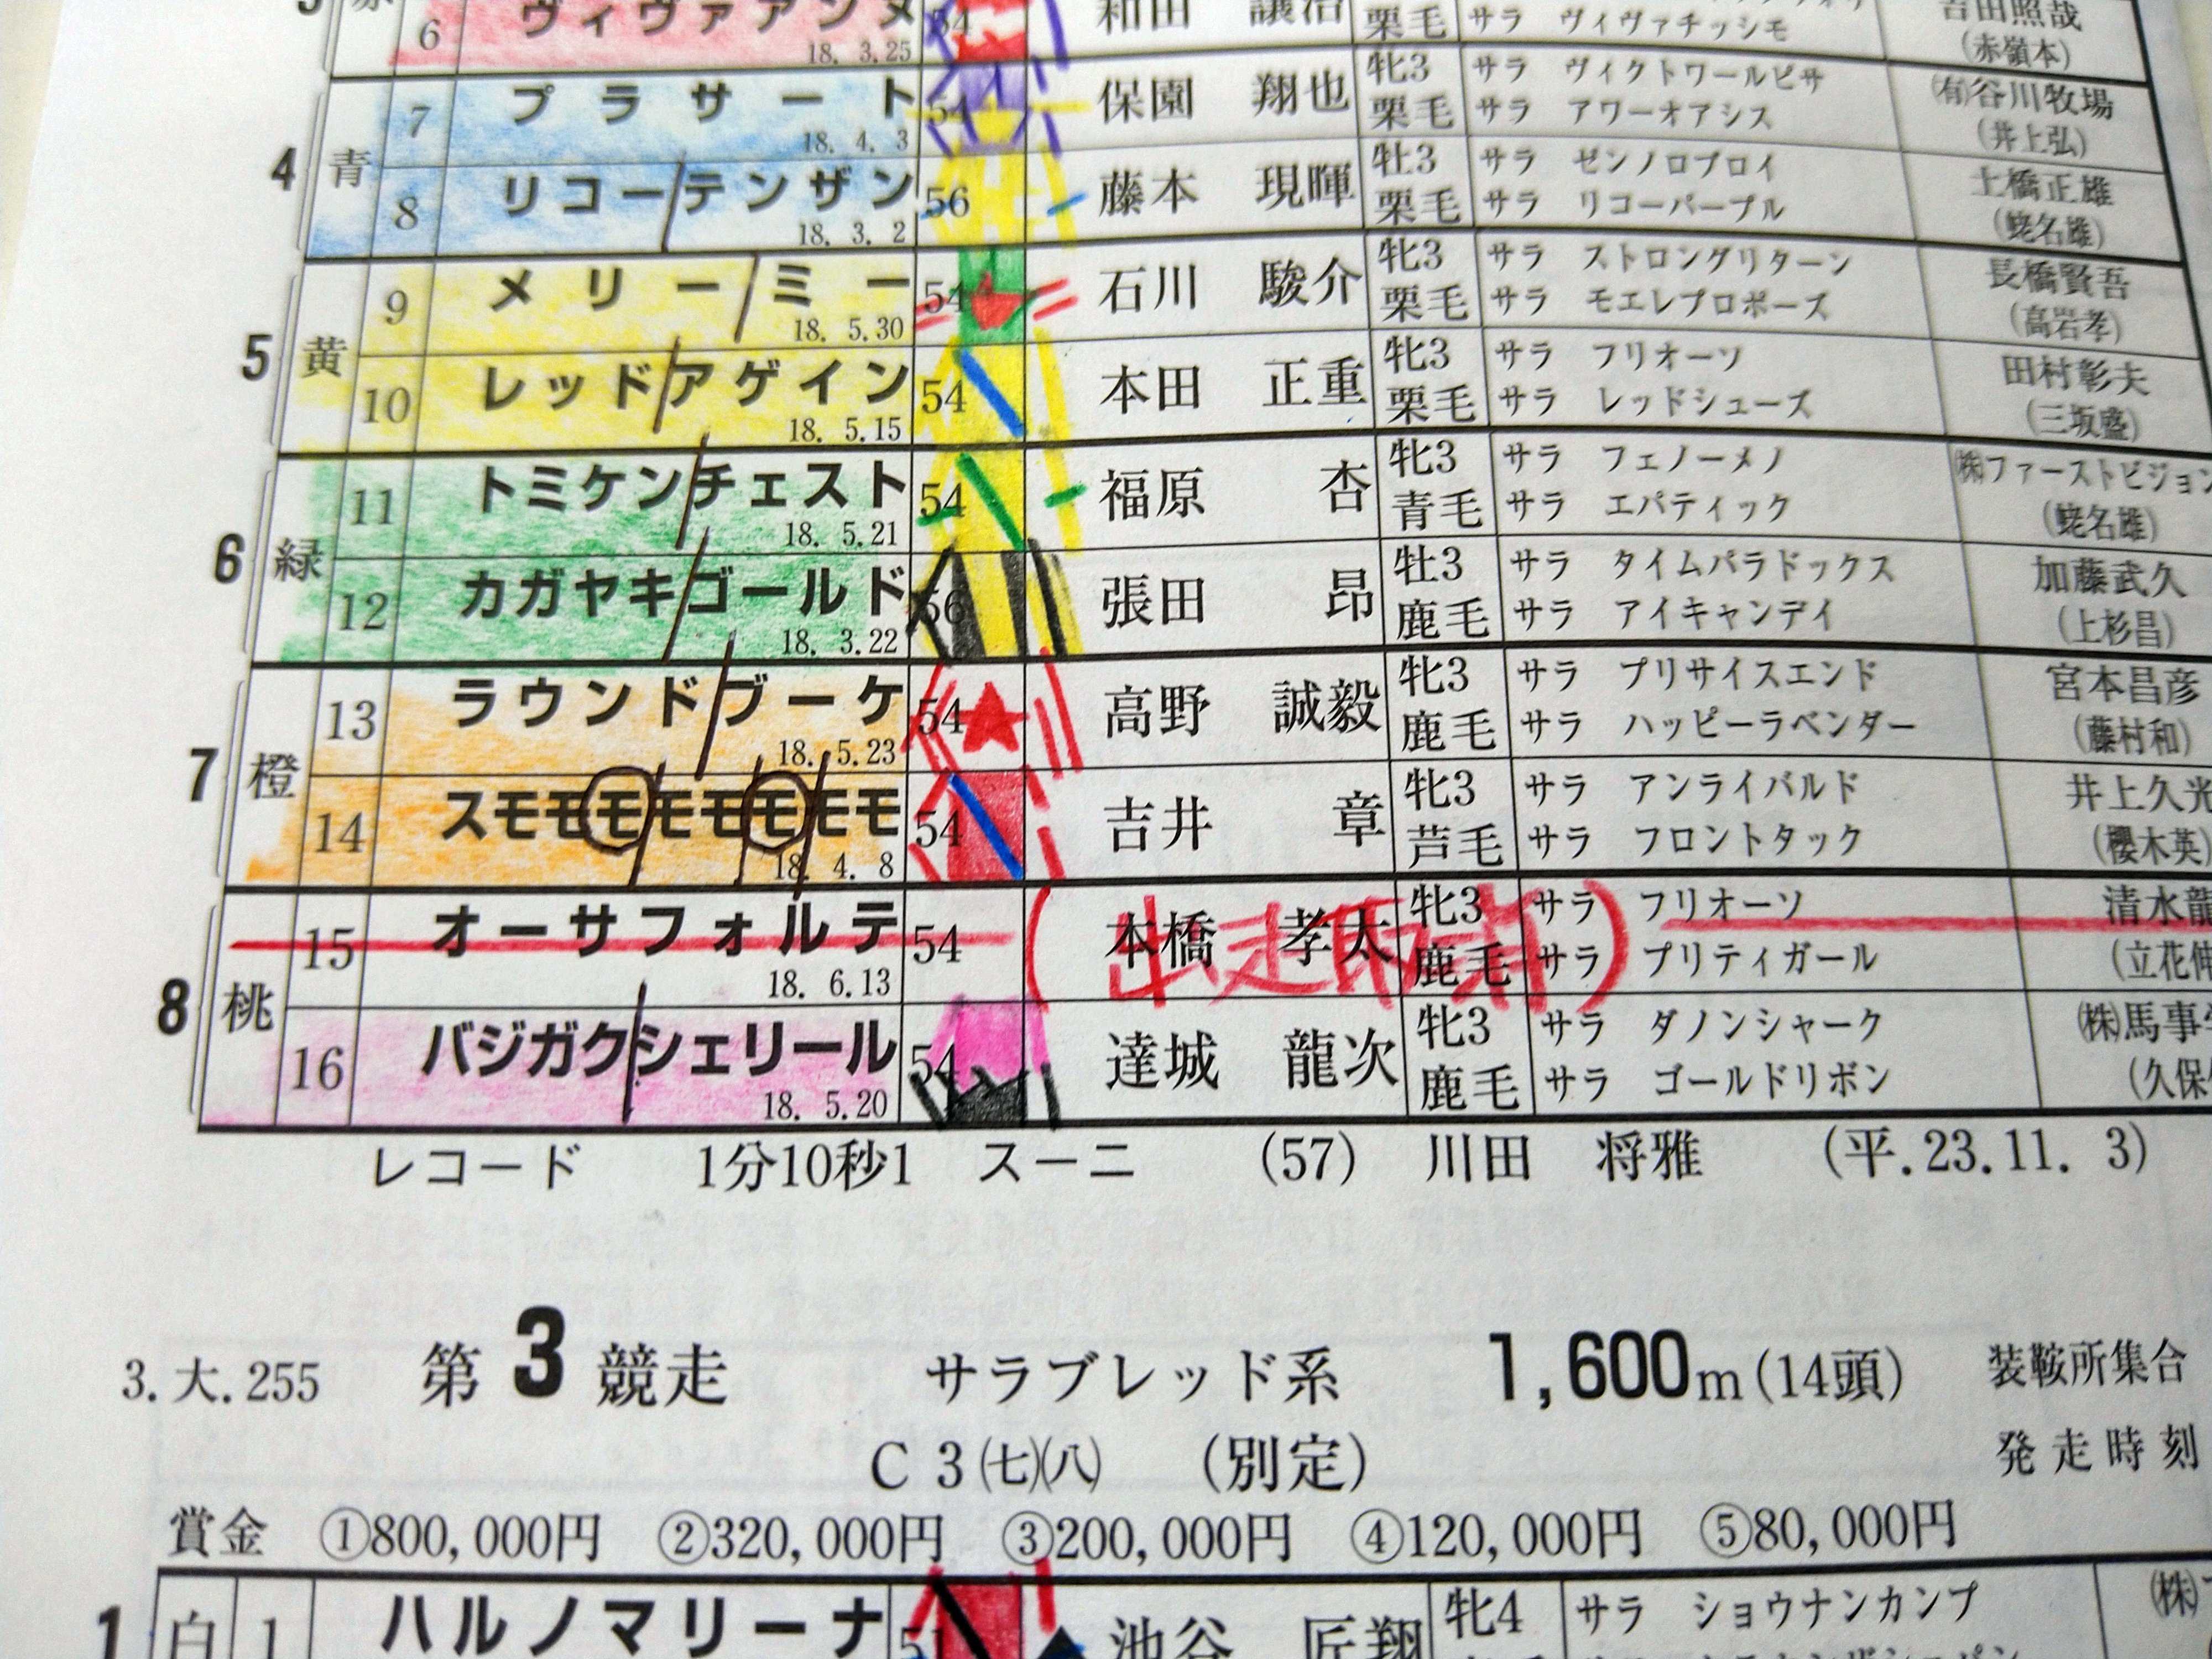 6 ヴィヴァアンメ 54 和田 譲治 栗毛 サラ ヴィヴァチッシモ 吉田照哉
18. 3.25 (赤嶺本)
4 青 7 プラサート 54 保園 翔也 牝3 サラ ヴィクトワールピサ (有)谷川牧場
18. 4. 3 栗毛 サラ アワーオアシス (井上弘)
8 リコーテンザン 56 藤本 現暉 牡3 サラ ゼンノロブロイ 土橋正雄
18. 3. 2 栗毛 サラ リコーパープル (蛯名雄)
5 黄 9 メリーミー 54 石川 駿介 牝3 サラ ストロングリターン 長橋賢吾
18. 5.30 栗毛 サラ モエレプロポーズ (高岩孝)
10 レッドアゲイン 54 本田 正重 牝3 サラ フリオーソ 田村彰夫
18. 5.15 栗毛 サラ レッドシューズ (三坂盛)
6 緑 11 トミケンチェスト 54 福原 杏 牝3 サラ フェノーメノ (株)ファーストビジョン
18. 5.21 青毛 サラ エパティック (蛯名雄)
12 カガヤキゴールド 56 張田 昂 牡3 サラ タイムパラドックス 加藤武久
18. 3.22 鹿毛 サラ アイキャンデイ (上杉昌)
7 橙 13 ラウンドブーケ 54 高野 誠毅 牝3 サラ プリサイスエンド 宮本昌彦
18. 5.23 鹿毛 サラ ハッピーラベンダー (藤村和)
14 スモモモモモモモモ 54 吉井 章 牝3 サラ アンライバルド 井上久光
18. 4. 8 芦毛 サラ フロントタック (櫻木英)
8 桃 15 オーサフォルテ 54 本橋 孝太 牝3 サラ フリオーソ 清水龍
18. 6.13 鹿毛 サラ プリティガール (立花伸
(出走取消)
16 バジガクシェリール 54 達城 龍次 牝3 サラ ダノンシャーク (株)馬事学
18. 5.20 鹿毛 サラ ゴールドリボン (久保
レコード 1分10秒1 スーニ (57) 川田 将雅 (平.23.11. 3)
3.大.255 第3競走 サラブレッド系 1,600m(14頭) 装鞍所集合
C3(七)(八) (別定) 発走時刻
賞金 ①800,000円 ②320,000円 ③200,000円 ④120,000円 ⑤80,000円
1 白 1 ハルノマリーナ 51 池谷 匠翔 牝4 サラ ショウナンカンプ (株)